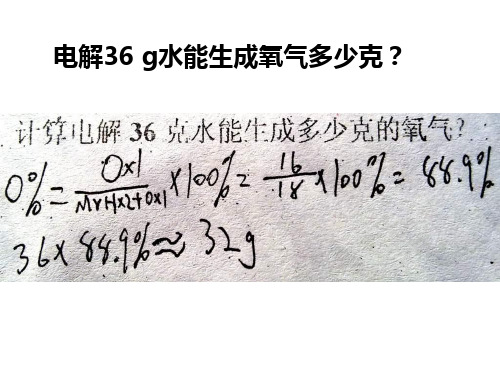 电解36 g水能生成氧气多少克？
计算电解 36 克水能生成多少克的氧气?
O% = O×1/MrH×2+O×1 ×100% = 16/18 ×100% = 88.9%
36×88.9%≈32g